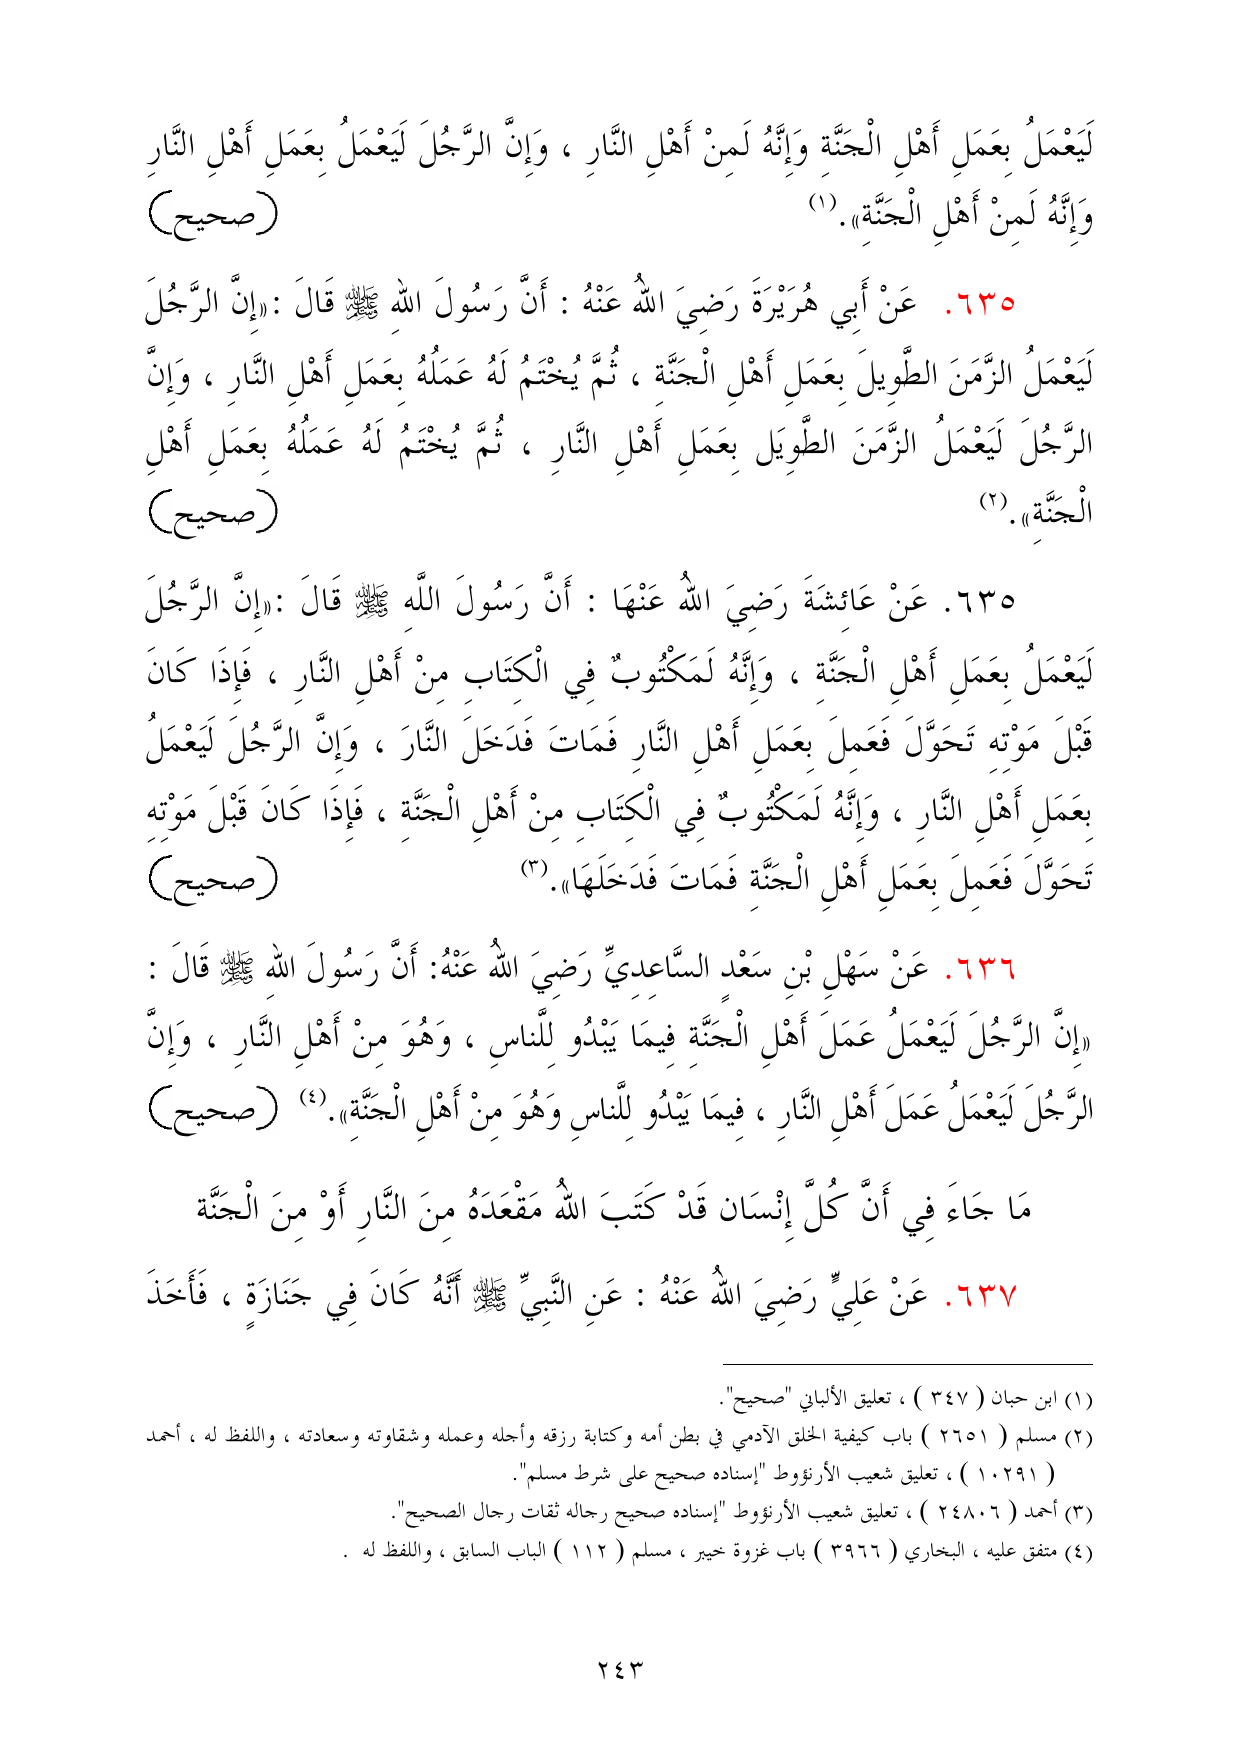 لَيَعْمَلُ بِعَمَلِ أَهْلِ الْجَنَّةِ وَإِنَّهُ لَمِنْ أَهْلِ النَّارِ ، وَإِنَّ الرَّجُلَ لَيَعْمَلُ بِعَمَلِ أَهْلِ النَّارِ
وَإِنَّهُ لَمِنْ أَهْلِ الْجَنَّةِ».(١) (صحيح)
٦٣٥. عَنْ أَبِي هُرَيْرَةَ رَضِيَ اللهُ عَنْهُ : أَنَّ رَسُولَ اللهِ ﷺ قَالَ :«إِنَّ الرَّجُلَ
لَيَعْمَلُ الزَّمَنَ الطَّوِيلَ بِعَمَلِ أَهْلِ الْجَنَّةِ ، ثُمَّ يُخْتَمُ لَهُ عَمَلُهُ بِعَمَلِ أَهْلِ النَّارِ ، وَإِنَّ
الرَّجُلَ لَيَعْمَلُ الزَّمَنَ الطَّوِيَل بِعَمَلِ أَهْلِ النَّارِ ، ثُمَّ يُخْتَمُ لَهُ عَمَلُهُ بِعَمَلِ أَهْلِ
الْجَنَّةِ».(٢) (صحيح)
٦٣٥. عَنْ عَائِشَةَ رَضِيَ اللهُ عَنْهَا : أَنَّ رَسُولَ اللَّهِ ﷺ قَالَ :«إِنَّ الرَّجُلَ
لَيَعْمَلُ بِعَمَلِ أَهْلِ الْجَنَّةِ ، وَإِنَّهُ لَمَكْتُوبٌ فِي الْكِتَابِ مِنْ أَهْلِ النَّارِ ، فَإِذَا كَانَ
قَبْلَ مَوْتِهِ تَحَوَّلَ فَعَمِلَ بِعَمَلِ أَهْلِ النَّارِ فَمَاتَ فَدَخَلَ النَّارَ ، وَإِنَّ الرَّجُلَ لَيَعْمَلُ
بِعَمَلِ أَهْلِ النَّارِ ، وَإِنَّهُ لَمَكْتُوبٌ فِي الْكِتَابِ مِنْ أَهْلِ الْجَنَّةِ ، فَإِذَا كَانَ قَبْلَ مَوْتِهِ
تَحَوَّلَ فَعَمِلَ بِعَمَلِ أَهْلِ الْجَنَّةِ فَمَاتَ فَدَخَلَهَا».(٣) (صحيح)
٦٣٦. عَنْ سَهْلِ بْنِ سَعْدٍ السَّاعِدِيِّ رَضِيَ اللهُ عَنْهُ: أَنَّ رَسُولَ اللهِ ﷺ قَالَ :
«إِنَّ الرَّجُلَ لَيَعْمَلُ عَمَلَ أَهْلِ الْجَنَّةِ فِيمَا يَبْدُو لِلَّناسِ ، وَهُوَ مِنْ أَهْلِ النَّارِ ، وَإِنَّ
الرَّجُلَ لَيَعْمَلُ عَمَلَ أَهْلِ النَّارِ ، فِيمَا يَبْدُو لِلَّناسِ وَهُوَ مِنْ أَهْلِ الْجَنَّةِ».(٤) (صحيح)
مَا جَاءَ فِي أَنَّ كُلَّ إِنْسَان قَدْ كَتَبَ اللهُ مَقْعَدَهُ مِنَ النَّارِ أَوْ مِنَ الْجَنَّة
٦٣٧. عَنْ عَلِيٍّ رَضِيَ اللهُ عَنْهُ : عَنِ النَّبِيِّ ﷺ أَنَّهُ كَانَ فِي جَنَازَةٍ ، فَأَخَذَ
(١) ابن حبان ( ٣٤٧ ) ، تعليق الألباني "صحيح".
(٢) مسلم ( ٢٦٥١ ) باب كيفية الخلق الآدمي في بطن أمه وكتابة رزقه وأجله وعمله وشقاوته وسعادته ، واللفظ له ، أحمد
( ١٠٢٩١ ) ، تعليق شعيب الأرنؤوط "إسناده صحيح على شرط مسلم".
(٣) أحمد ( ٢٤٨٠٦ ) ، تعليق شعيب الأرنؤوط "إسناده صحيح رجاله ثقات رجال الصحيح".
(٤) متفق عليه ، البخاري ( ٣٩٦٦ ) باب غزوة خيبر ، مسلم ( ١١٢ ) الباب السابق ، واللفظ له .
٢٤٣